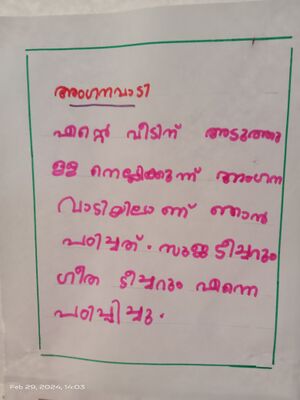 അംഗനവാടി
എന്റെ വീടിന് അടുത്തു
ള്ള നെല്ലിക്കുന്ന് അംഗന
വാടിയിലാണ് ഞാൻ
പഠിച്ചത്. സുജ ടീച്ചറും
ഗീത ടീച്ചറും എന്നെ
പഠിപ്പിച്ചു.
Feb 29, 2024, 14:03